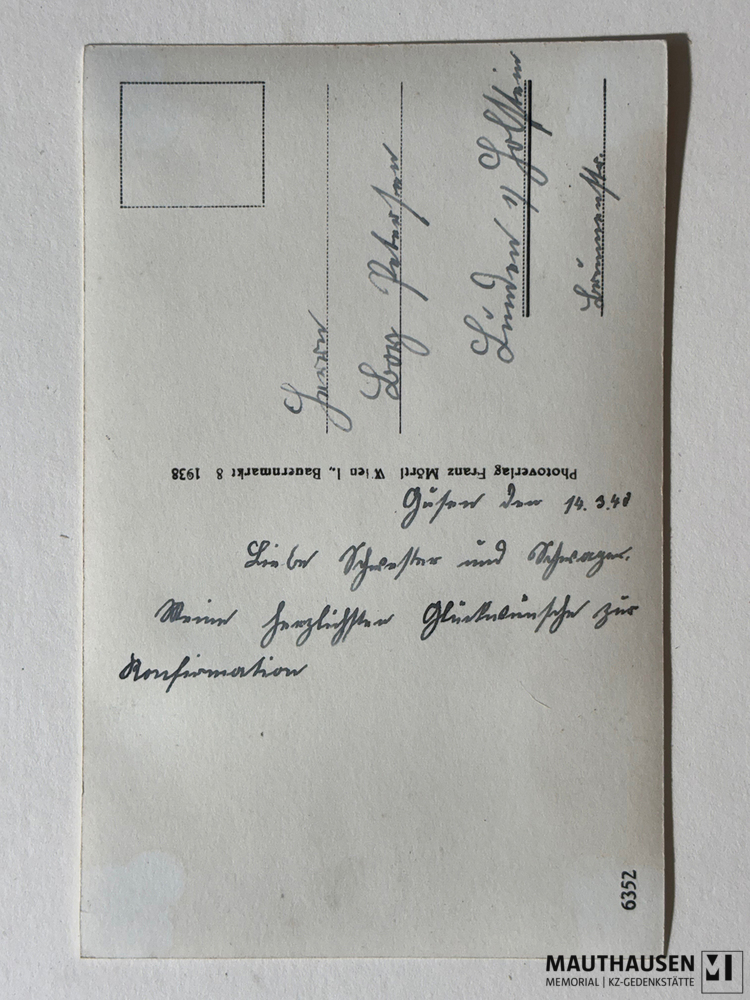 Herrn
Boy Petersen
Lunden i/ Holstein
Brunnenstr.
Photoverlag Franz Mörtl Wien I., Bauernmarkt 8 1938
Gusen den 14.3.40
Liebe Schwester und Schwager.
Meine herzlichsten Glückwünsche zur
Konfirmation
6352
MAUTHAUSEN
MEMORIAL | KZ-GEDENKSTÄTTE